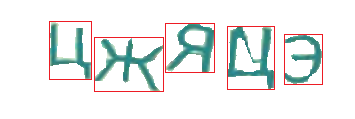 ЦЖЯДЭ